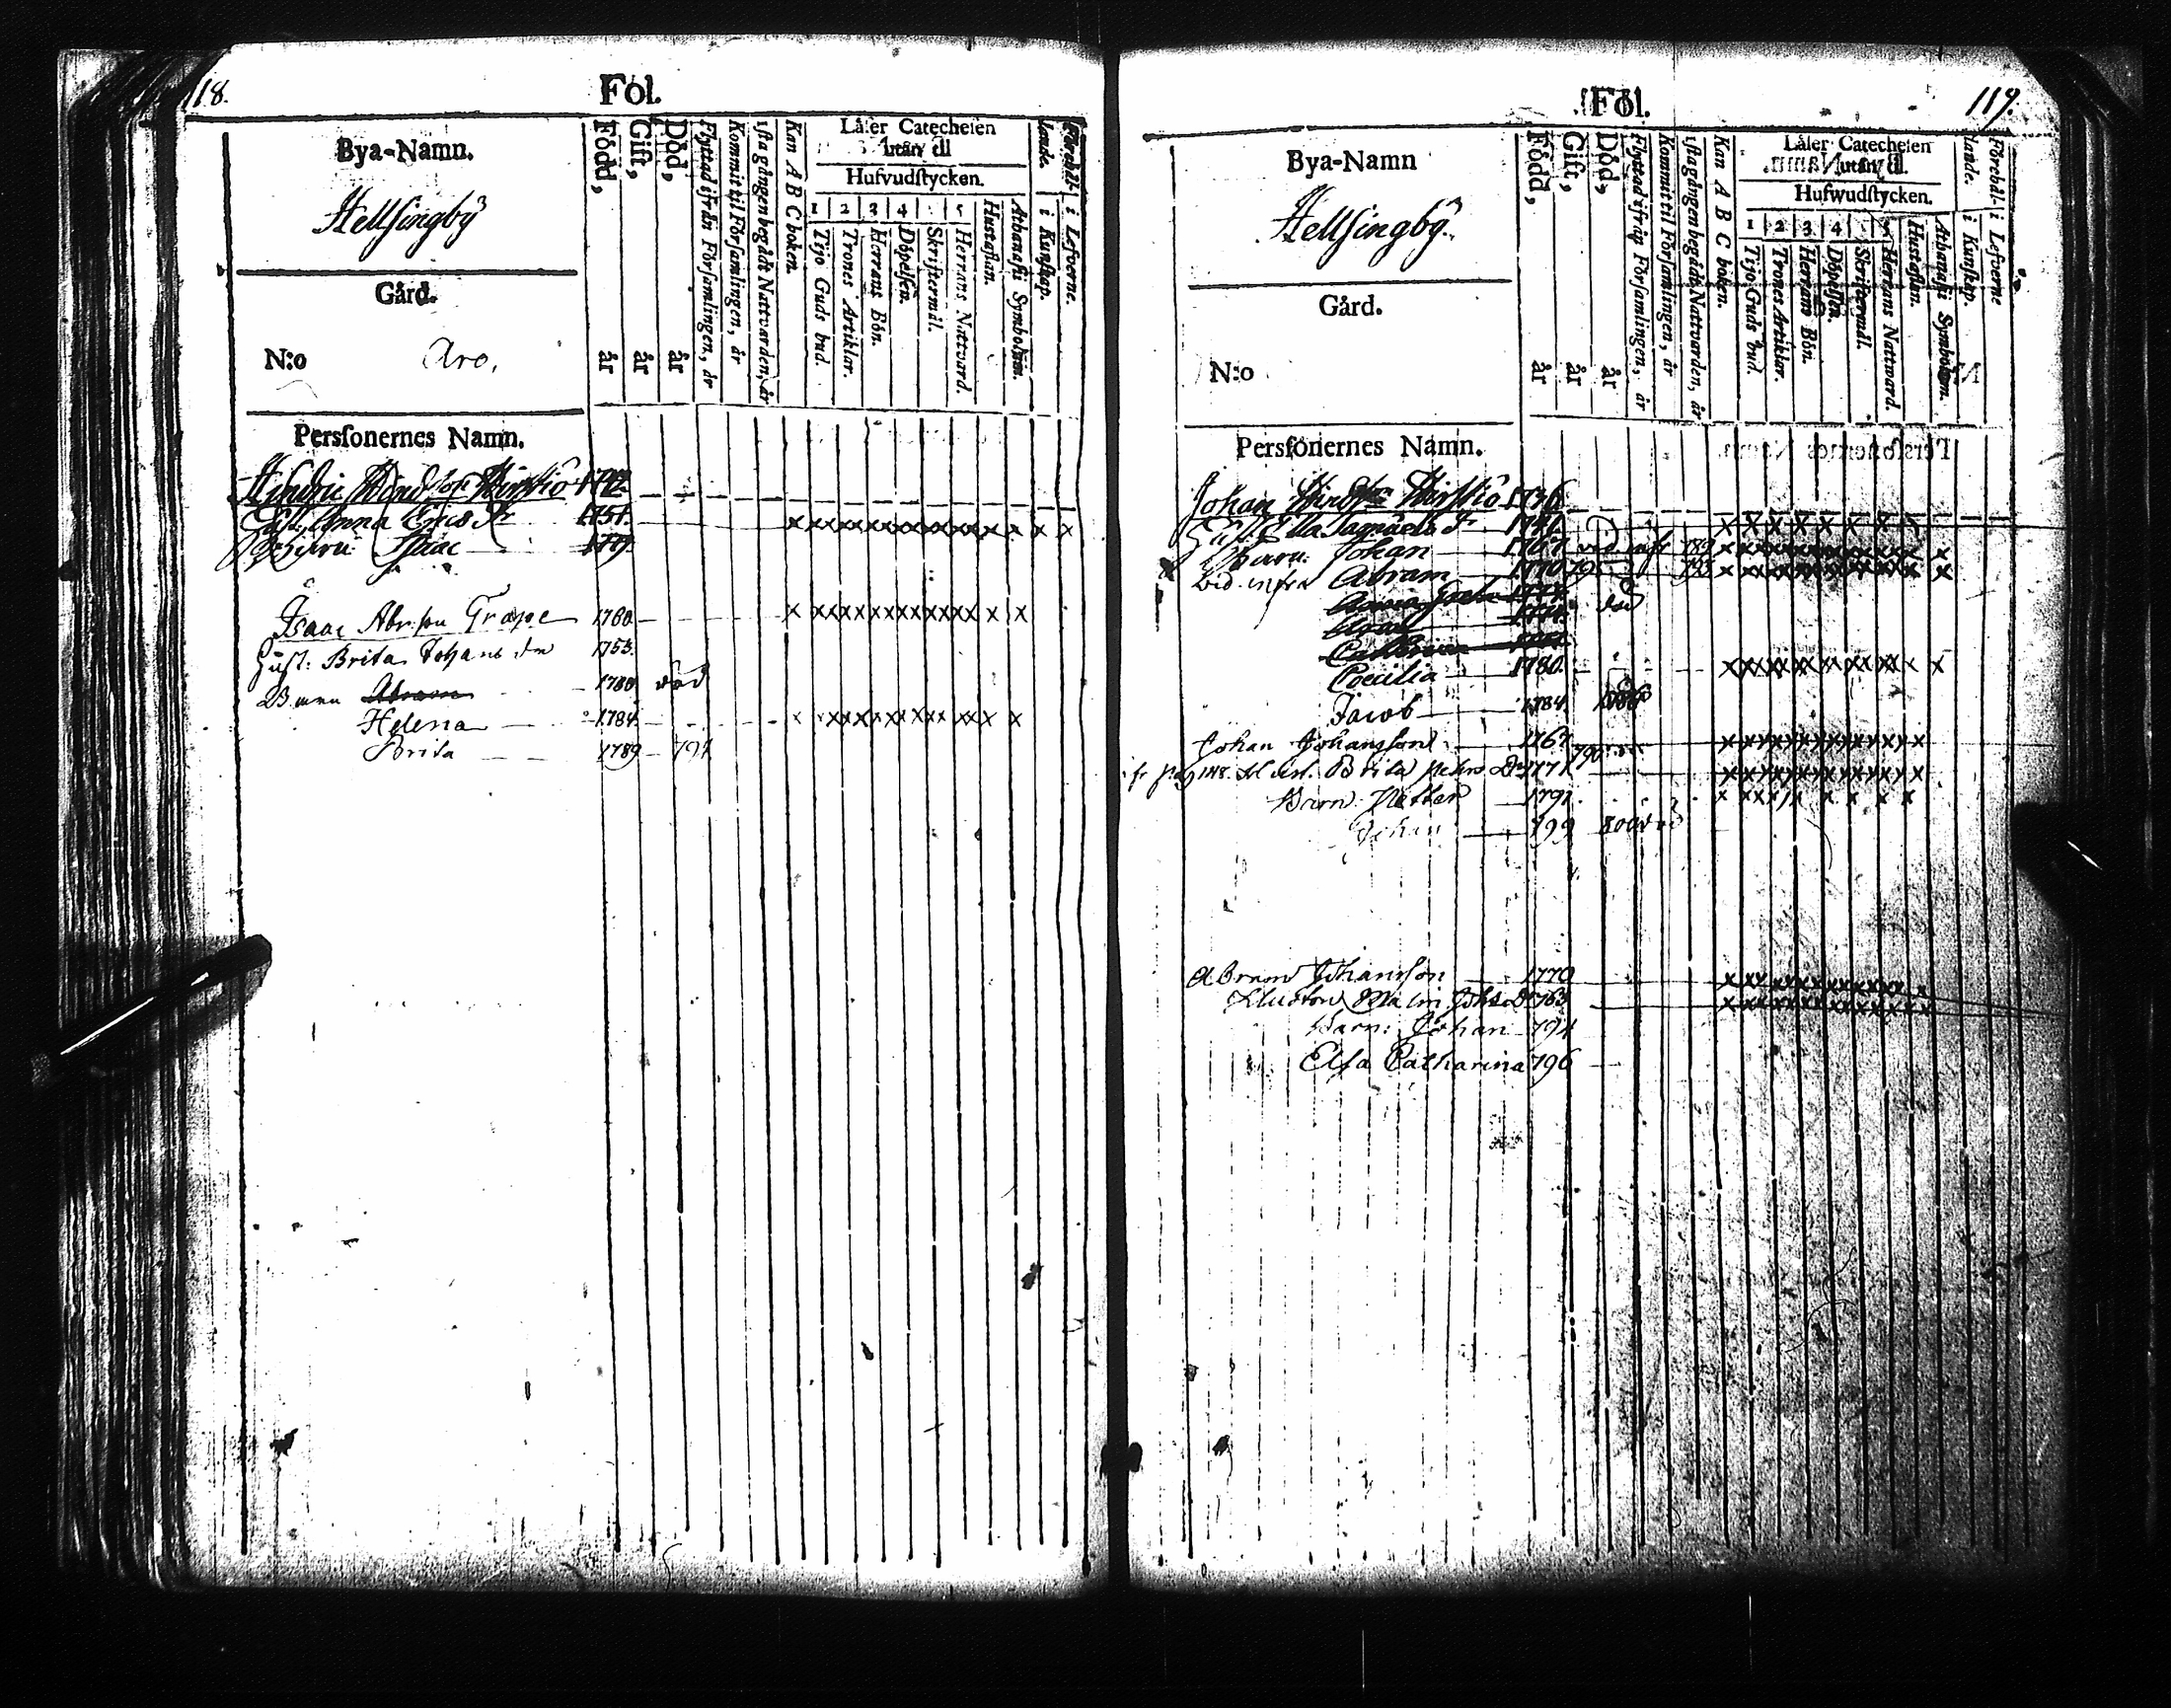 118.
Föl.
Bya-Namn.
Hellsingby
Gård.
N:o Aro.
Personernes Namn.
Född, år
Gift, år
Död, år
Flyttad ifrån Församlingen, år
Kommit til Församlingen, år
ista gången begådt Nattvarden, år
Kan A B C boken.
Läser Catechesen
utan til
Hufvudstycken.
1 2 3 4 5
Tijo Guds bud.
Trones Artiklar.
Herrans Bön.
Döpelsen.
Skriftermål.
Herrans Nattvard.
Hustaflan.
Athanasii Symbolum.
Förehållande.
i Kunskap.
i Lefverne.
1742
Hust. Anna Erics dr 1751.
Isaac 1779
Isaac Abr:son Grape 1760
Hust: Brita Johans dr 1753.
Barnen Abram 1780 död
Helena 1784
Brita 1789 791
119.
Föl.
Bya-Namn
Hellsingby.
Gård.
N:o
Personernes Namn.
Född, år
Gift, år
Död, år
Flyttad ifrån Församlingen, år
Kommit til Församlingen, år
ista gången begådt Nattvarden, år
Kan A B C boken.
Läser Catechesen
utan til.
Hufwudstycken.
1 2 3 4 5
Tijo Guds bud
Trones Artiklar.
Herrans Bön.
Döpelsen.
Skriftermål.
Herrans Nattward.
Hustaflan.
Athanasii Symbolum.
Förehållande.
i Kunskap.
i Lefverne
Johan 1736
Hust. Samuels dr
Johan 1767
vid. infra Abram 1770
död
Coecilia 1780.
Jacob 1784
Johan Johansson 1767
pag 148. Hust. Brita Pehrs Dr 1771
Barn Petter 1791
Johan 799
Abram Johansson 1770
Hustru Malin Johs Dr 763
Barn: Johan 794
Elsa Catharina 796